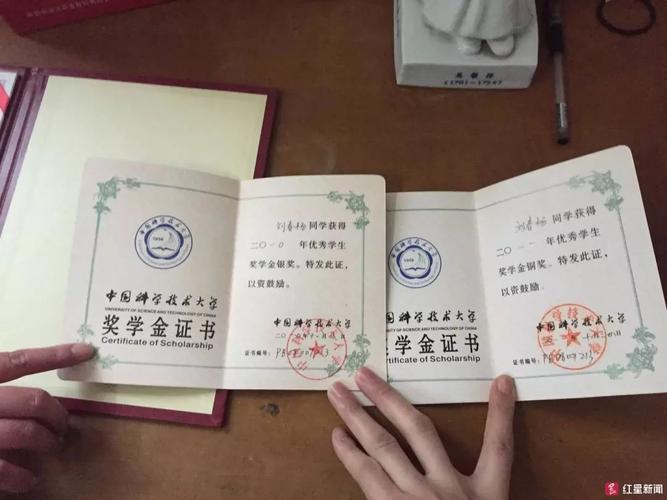 吴敬梓
(1701-1754)
刘春杨同学获得
二〇一〇年优秀学生
奖学金银奖。特发此证,
以资鼓励。
中国科学技术大学
证书编号:
1958
中国科学技术大学
UNIVERSITY OF SCIENCE AND TECHNOLOGY OF CHINA
奖学金证书
Certificate of Scholarship
刘春杨同学获得
二〇一一年优秀学生
奖学金铜奖。特发此证,
以资鼓励。
中国科学技术大学
证书编号:
中国科学技术大学
OF SCIENCE AND TECHNOLOGY OF CHINA
学金证书
ificate of Scholarship
红星新闻